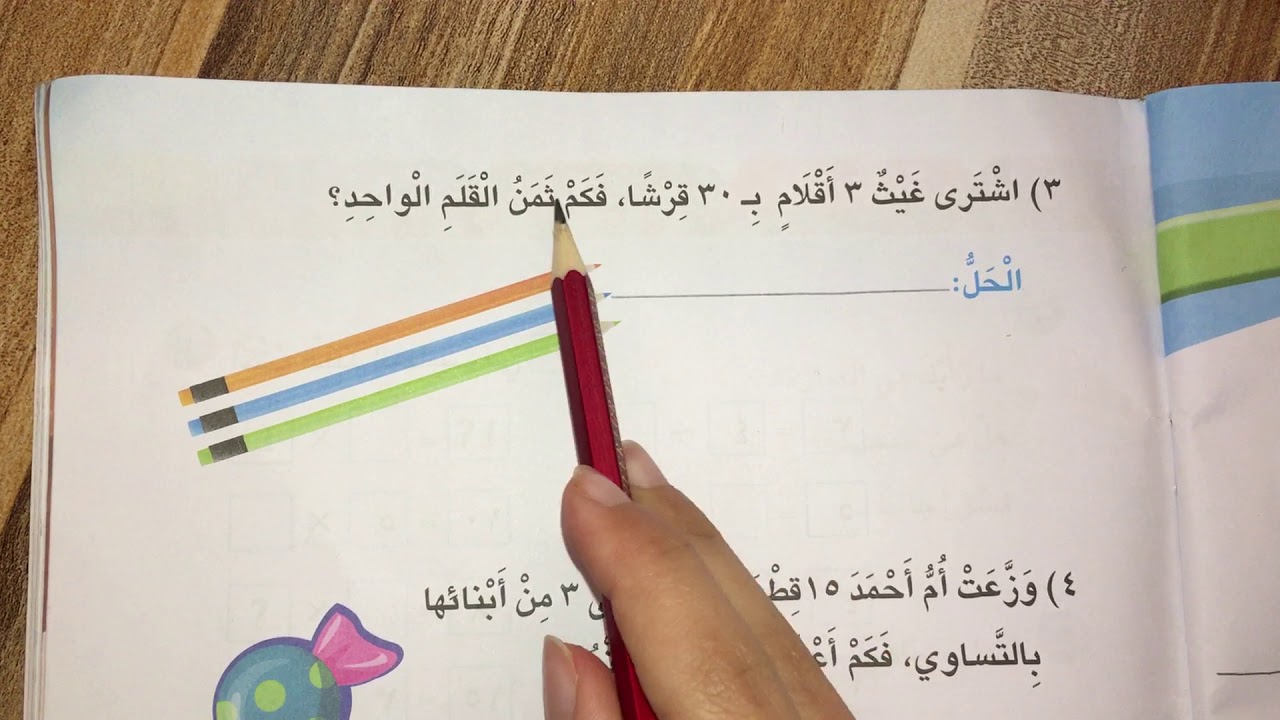 ٣) اشْتَرى غَيْثٌ ٣ أَقْلَامٍ بِـ ٣٠ قِرْشًا، فَكَمْ ثَمَنُ الْقَلَمِ الْواحِدِ؟
الْحَلُّ:
٤) وَزَّعَتْ أُمُّ أَحْمَدَ ١٥ ٣ مِنْ أَبْنائها
بِالتَّساوي، فَكَمْ